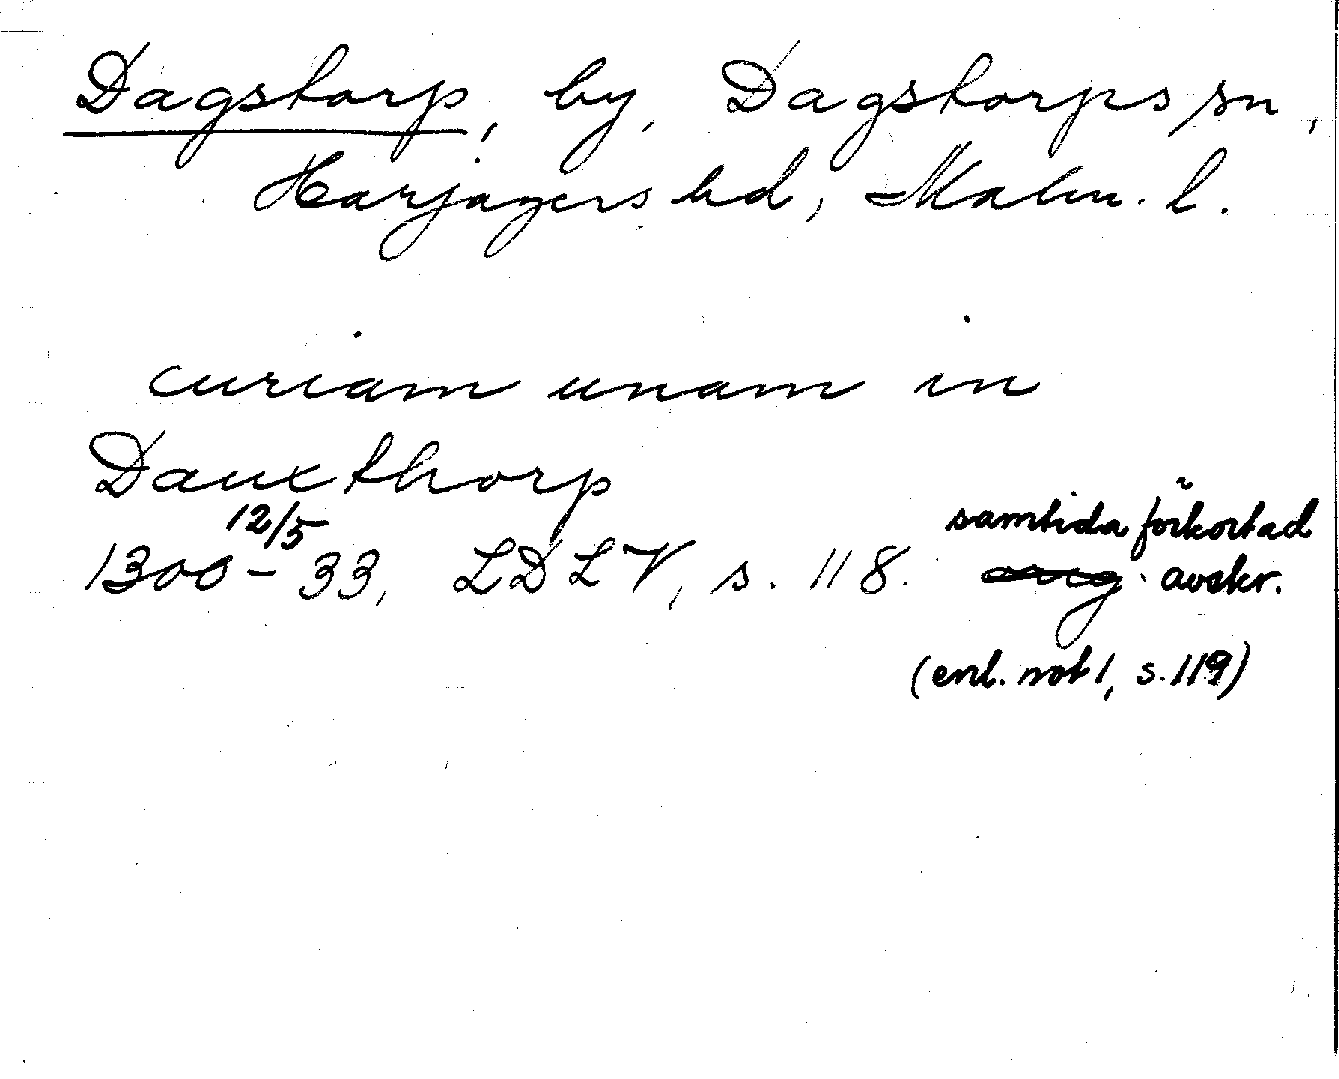 Dagstorp, by, Dagstorps sn,
Harjagers hd, Malm. l.
curiam unam in
Dauxthorp
12/5
1300-33, LDLV, s. 118. samtida förkortad
avskr.
(enl. not 1, s. 119)